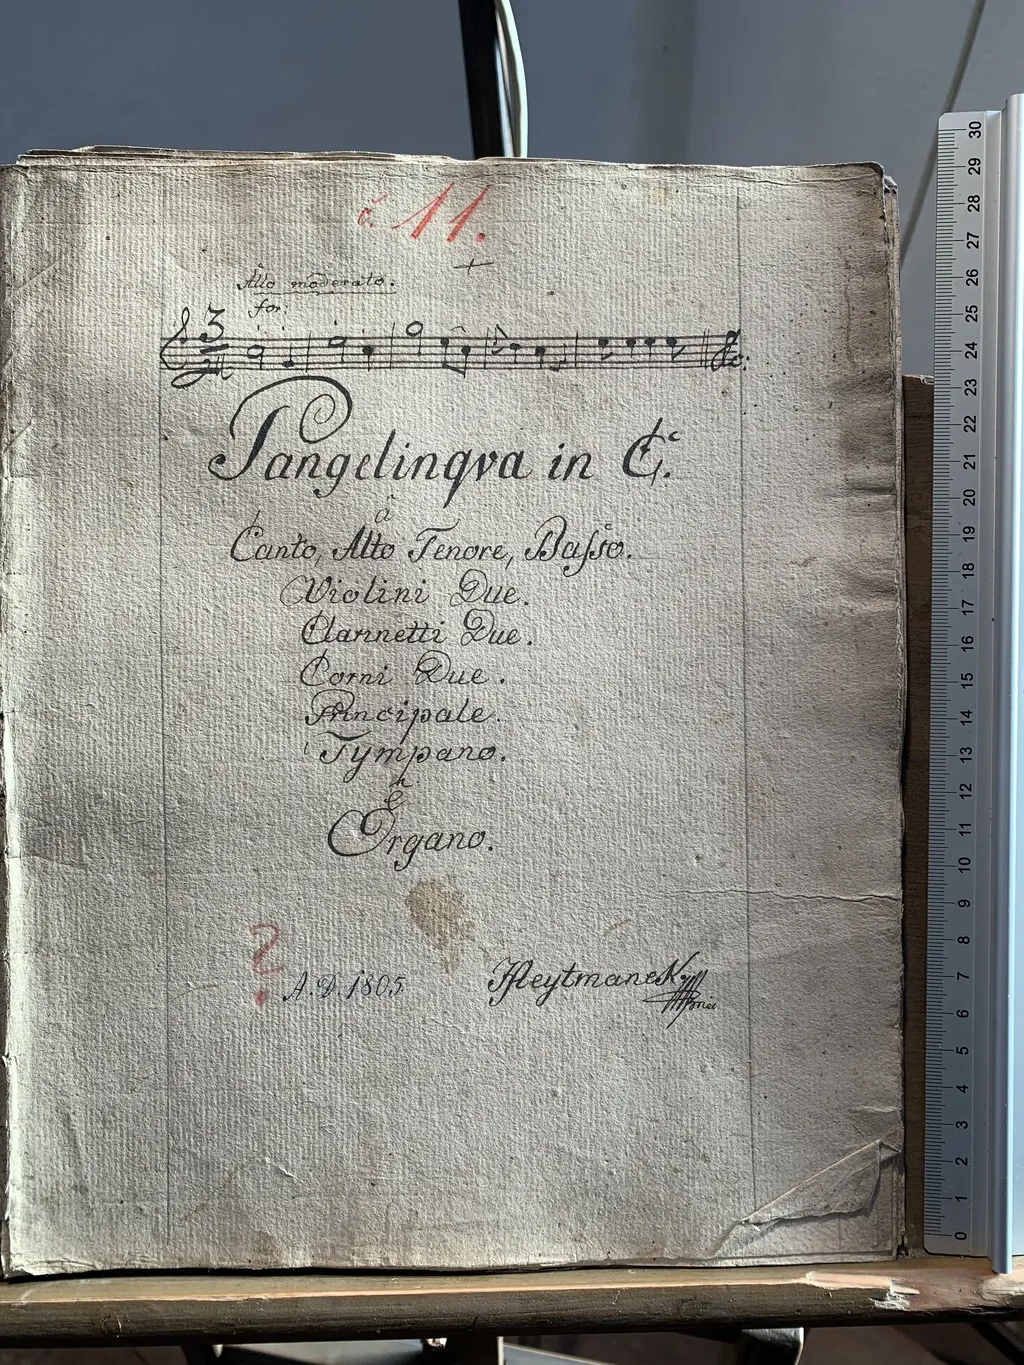 č. 11.
Allo moderato.
for:
3
Pangelinqva in C.
â
Canto, Alto Tenore, Baſso.
Violini Due.
Clarinetti Due.
Corni Due.
Principale.
Tympano.
è
Organo.
?
A. D. 1805 Heytmanek
30
29
28
27
26
25
24
23
22
21
20
19
18
17
16
15
14
13
12
11
10
9
8
7
6
5
4
3
2
1
0